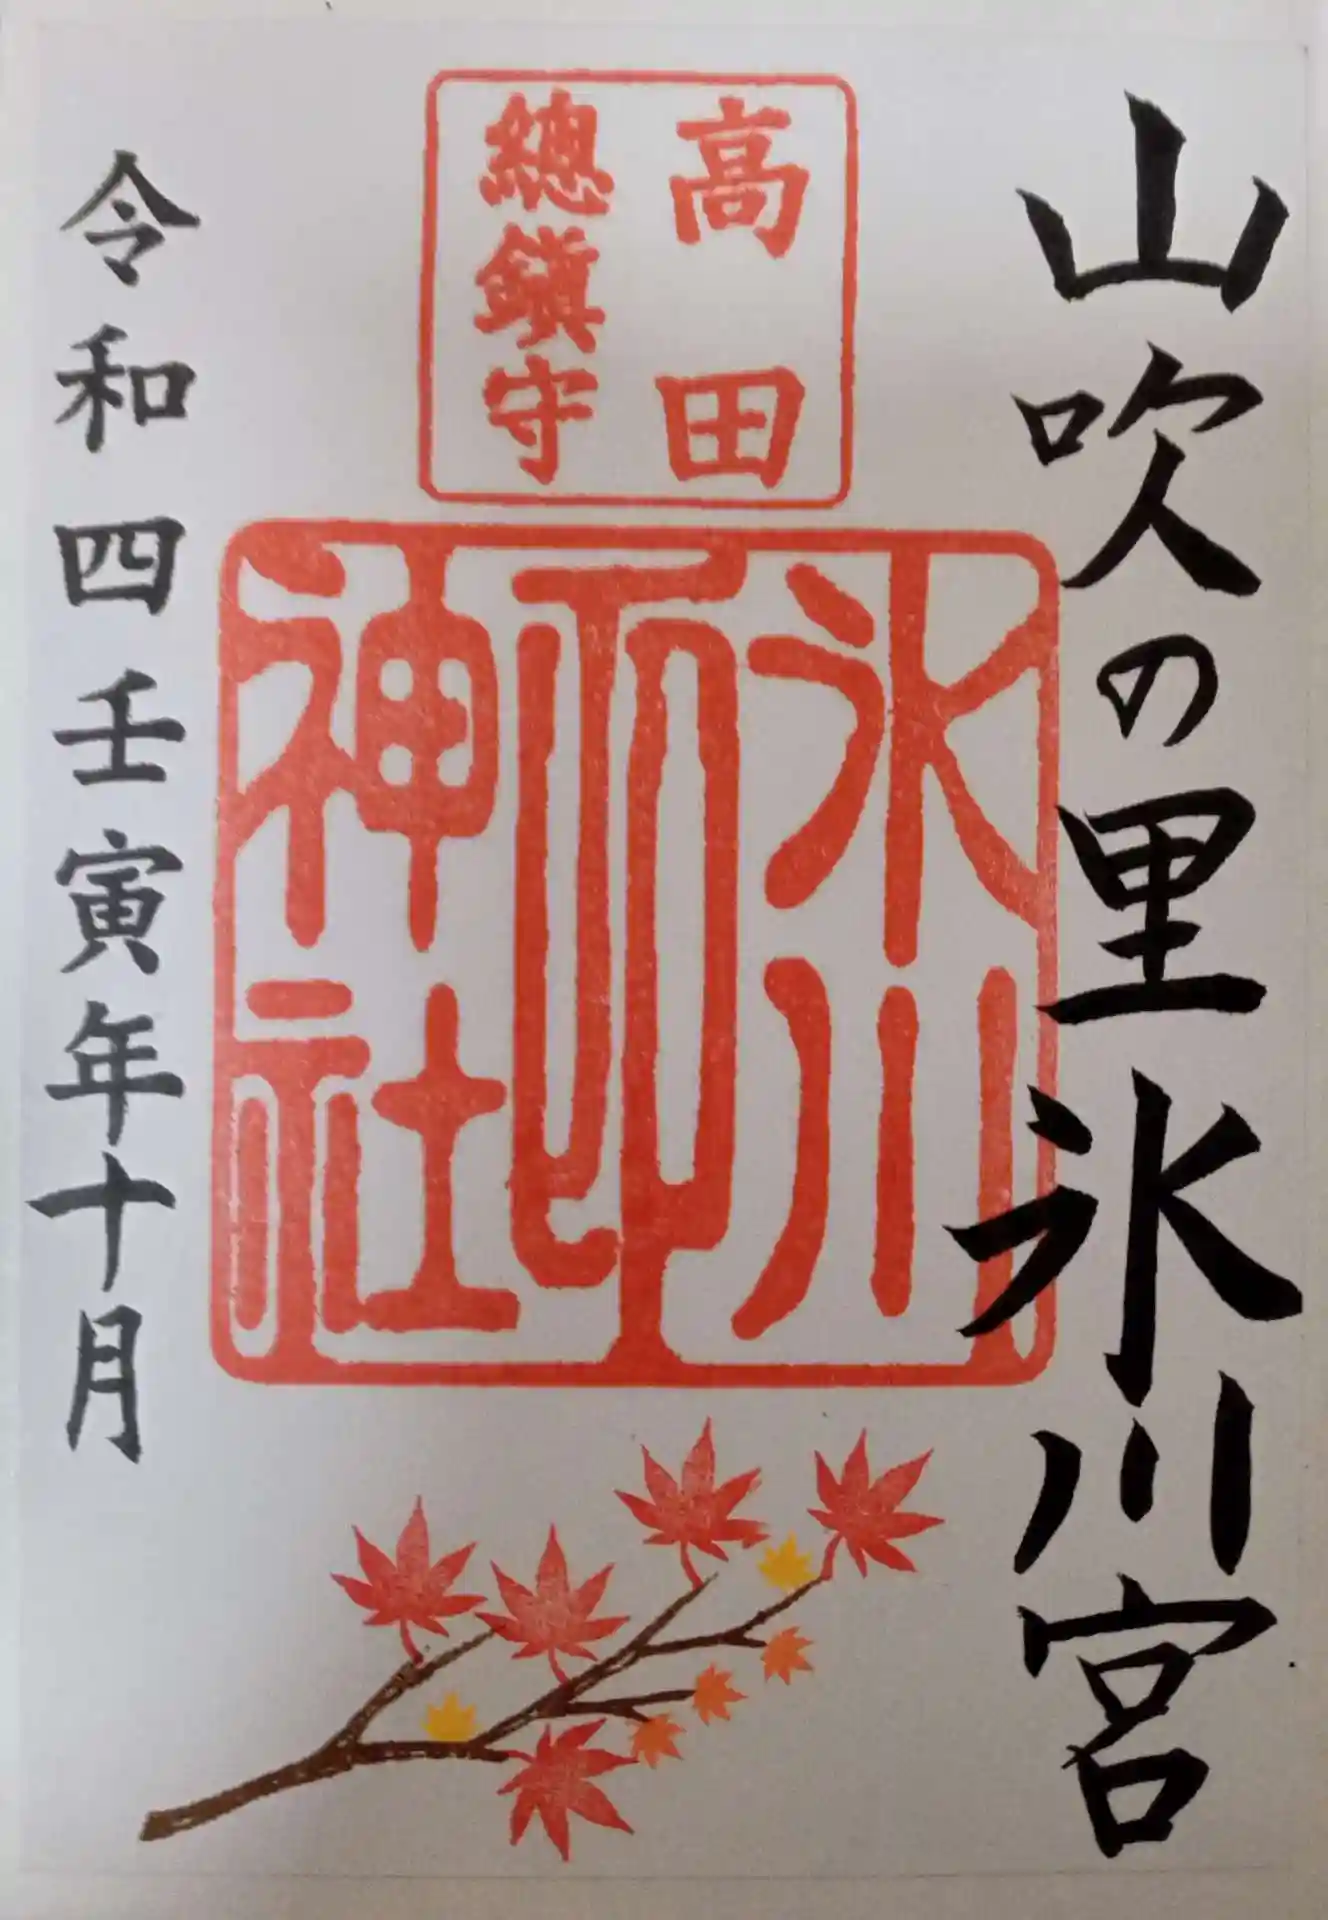 山吹の里氷川宮
高田
總鎭守
氷川
神社
令和四壬寅年十月